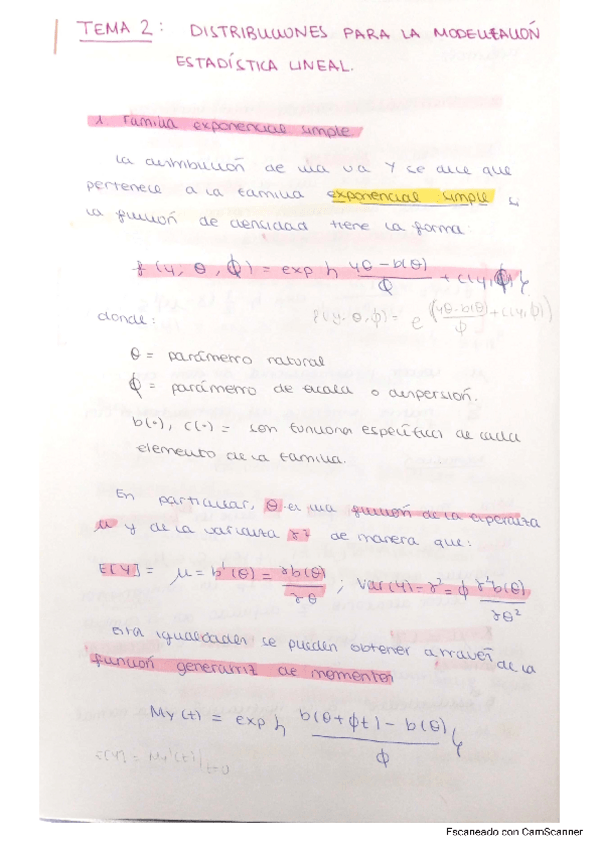 TEMA 2: DISTRIBUCIONES PARA LA MODELIZACIÓN
ESTADÍSTICA LINEAL.
1. Familia exponencial simple
La distribución de una va Y se dice que
pertenece a la familia exponencial simple si
la función de densidad tiene la forma:
f(y, θ, ϕ) = exp { yθ - b(θ) / ϕ + c(y, ϕ) }
f(y, θ, ϕ) = e^(yθ - b(θ) / ϕ + c(y, ϕ))
donde:
θ = parámetro natural
ϕ = parámetro de escala o dispersión.
b(·), c(·) = son funciones específicas de cada
elemento de la familia.
En particular, θ es una función de la esperanza
μ y de la varianza σ² de manera que:
E[Y] = μ = b'(θ) = ∂b(θ) / ∂θ ; Var(Y) = σ² = ϕ ∂²b(θ) / ∂θ²
Estas igualdades se pueden obtener a través de la
función generatriz de momentos
My(t) = exp { b(θ + ϕt) - b(θ) / ϕ }
E[Y] = My'(t)|t=0
Escaneado con CamScanner